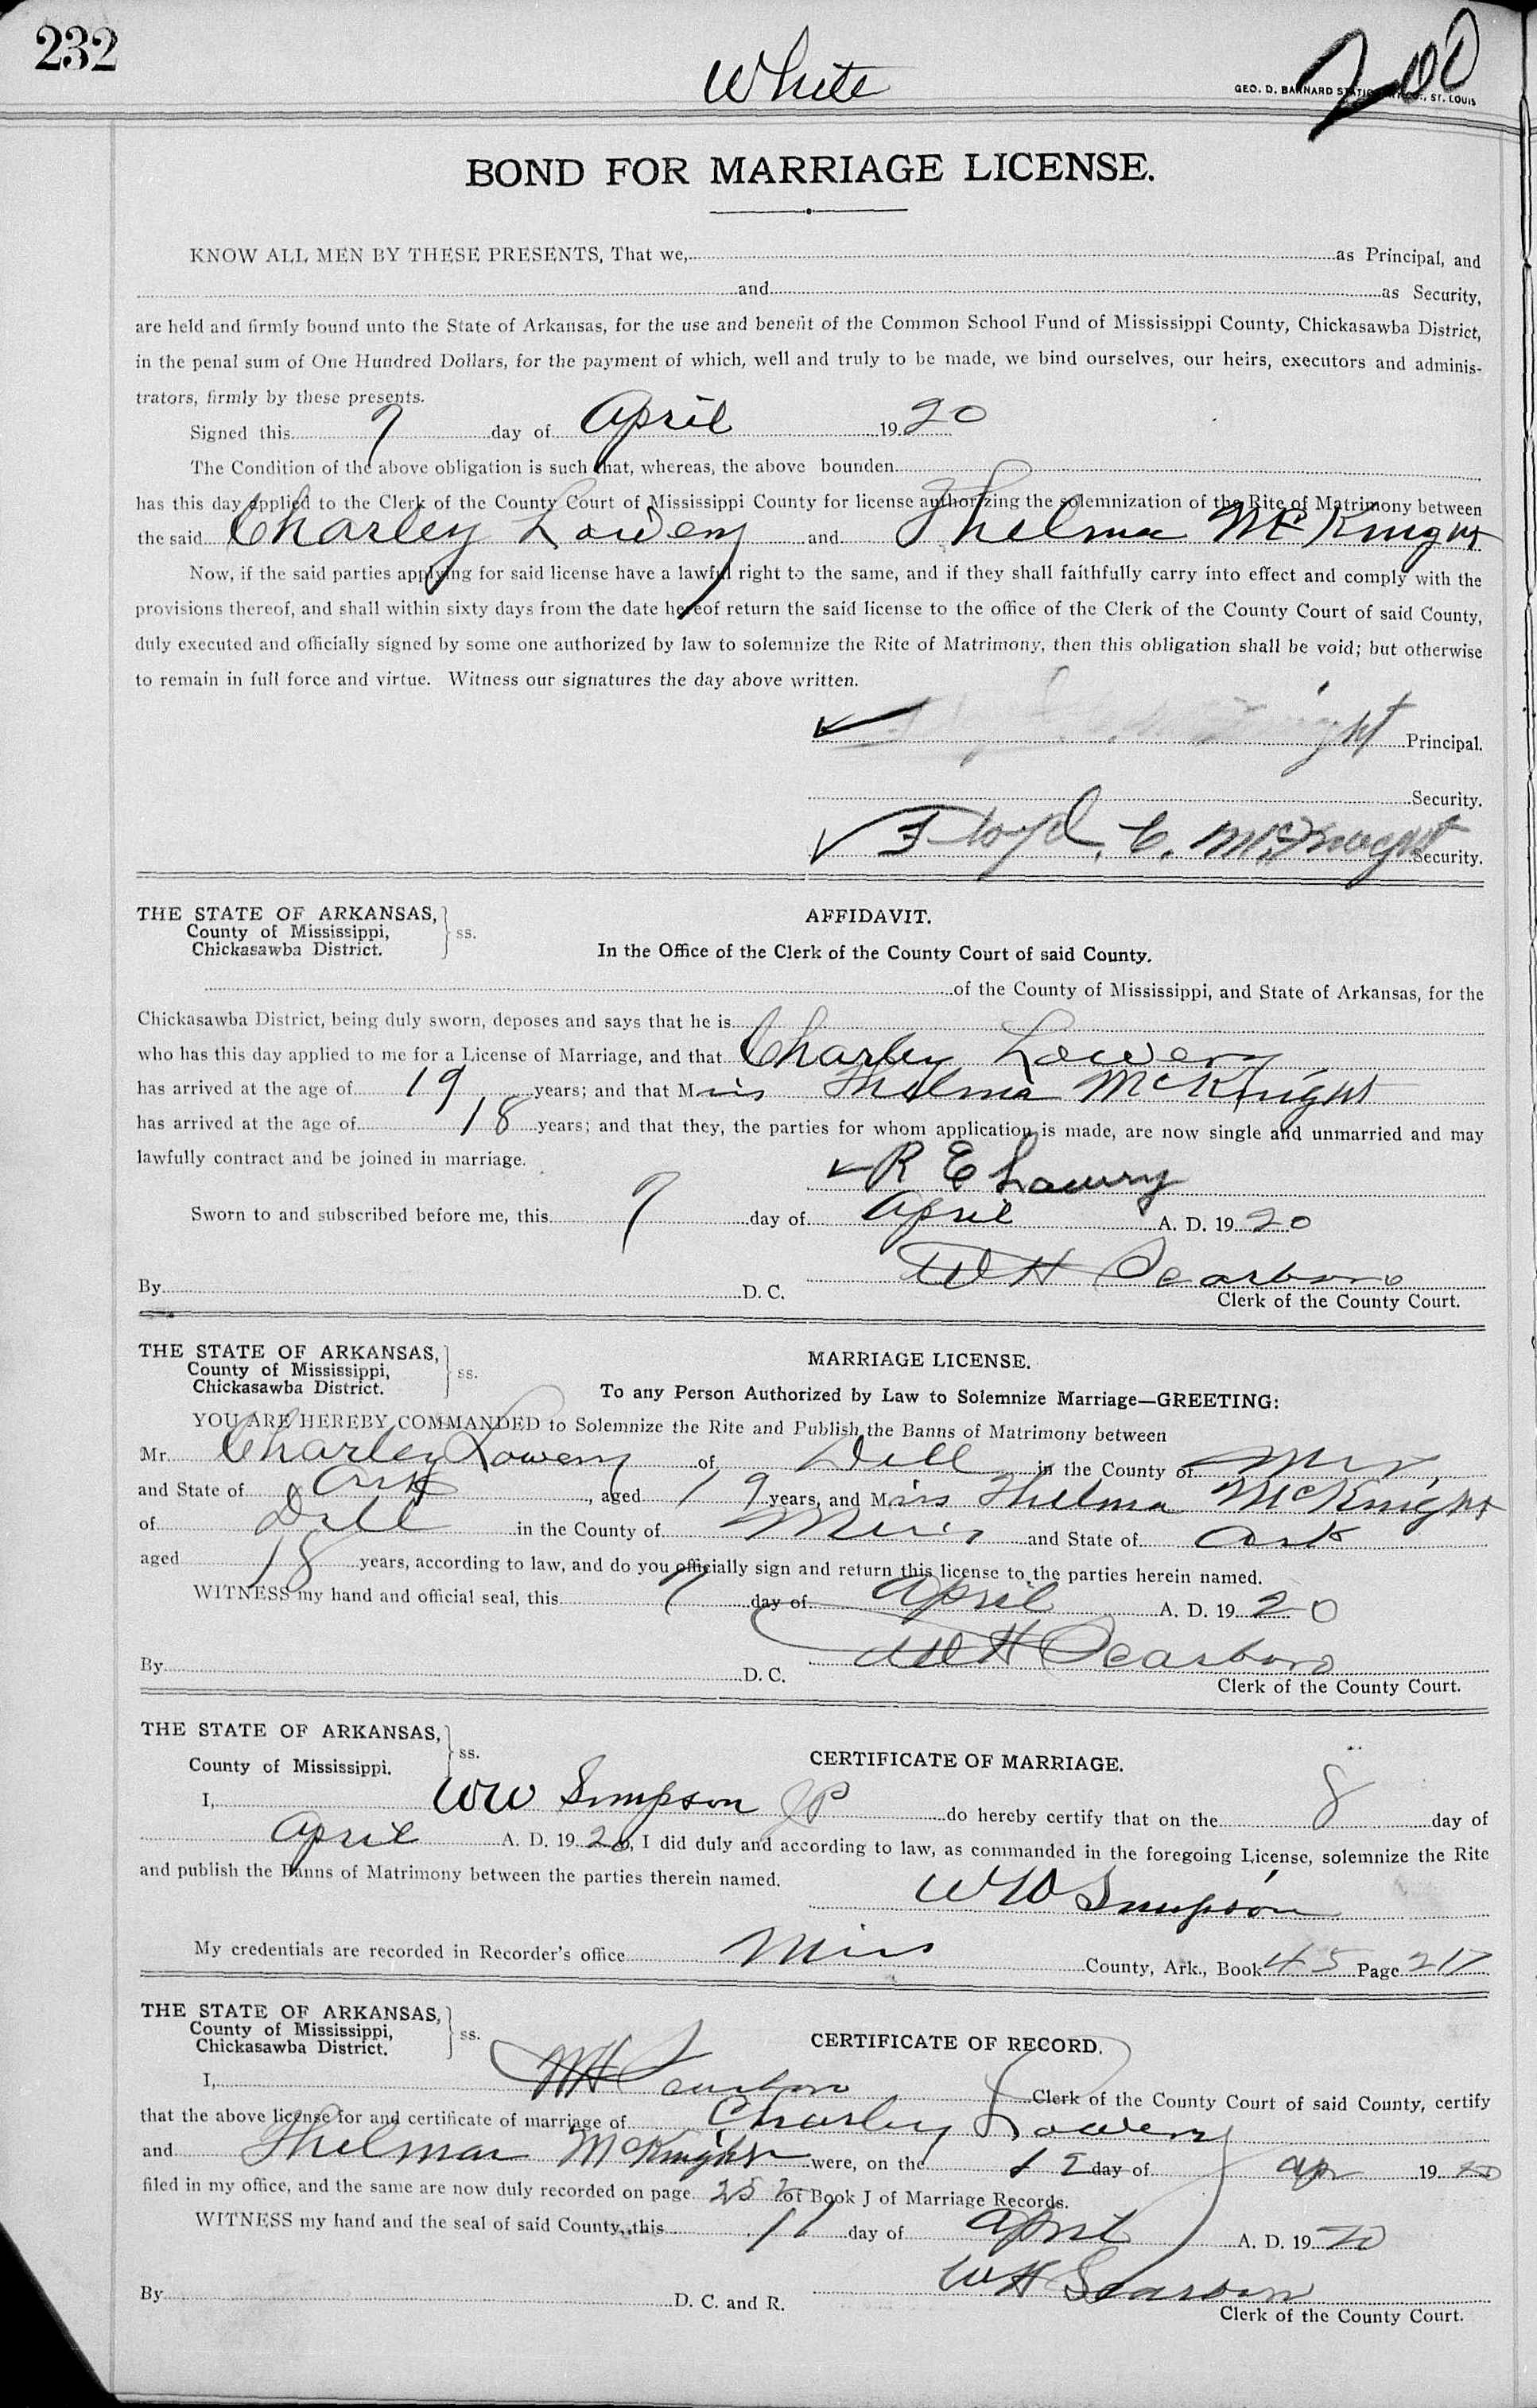 232
White
200
GEO. D. BARNARD STATIONERY CO., ST. LOUIS
BOND FOR MARRIAGE LICENSE.
KNOW ALL MEN BY THESE PRESENTS, That we, as Principal, and
and as Security,
are held and firmly bound unto the State of Arkansas, for the use and benefit of the Common School Fund of Mississippi County, Chickasawba District,
in the penal sum of One Hundred Dollars, for the payment of which, well and truly to be made, we bind ourselves, our heirs, executors and adminis-
trators, firmly by these presents.
Signed this 7 day of April 1920
The Condition of the above obligation is such that, whereas, the above bounden
has this day applied to the Clerk of the County Court of Mississippi County for license authorizing the solemnization of the Rite of Matrimony between
the said Charley Lowery and Thelma McKnight
Now, if the said parties applying for said license have a lawful right to the same, and if they shall faithfully carry into effect and comply with the
provisions thereof, and shall within sixty days from the date hereof return the said license to the office of the Clerk of the County Court of said County,
duly executed and officially signed by some one authorized by law to solemnize the Rite of Matrimony, then this obligation shall be void; but otherwise
to remain in full force and virtue. Witness our signatures the day above written.
Principal.
Security.
Floyd. C. McKnight Security.
THE STATE OF ARKANSAS,
County of Mississippi,
Chickasawba District.
ss.
AFFIDAVIT.
In the Office of the Clerk of the County Court of said County.
of the County of Mississippi, and State of Arkansas, for the
Chickasawba District, being duly sworn, deposes and says that he is
who has this day applied to me for a License of Marriage, and that Charley Lowery
has arrived at the age of 19 years; and that Miss Thelma McKnight
has arrived at the age of 18 years; and that they, the parties for whom application is made, are now single and unmarried and may
lawfully contract and be joined in marriage.
R E Lowry
Sworn to and subscribed before me, this 7 day of April A. D. 1920
W H Scarboro
By D. C.
Clerk of the County Court.
THE STATE OF ARKANSAS,
County of Mississippi,
Chickasawba District.
ss.
MARRIAGE LICENSE.
To any Person Authorized by Law to Solemnize Marriage—GREETING:
YOU ARE HEREBY COMMANDED to Solemnize the Rite and Publish the Banns of Matrimony between
Mr. Charley Lowery of Dell in the County of Miss,
and State of Ark, aged 19 years, and Miss Thelma McKnight
of Dell in the County of Miss and State of Ark
aged 18 years, according to law, and do you officially sign and return this license to the parties herein named.
WITNESS my hand and official seal, this 7 day of April A. D. 1920
W H Scarboro
By D. C.
Clerk of the County Court.
THE STATE OF ARKANSAS,
County of Mississippi.
ss.
CERTIFICATE OF MARRIAGE.
I, WW Simpson JP do hereby certify that on the 8 day of
April A. D. 1920, I did duly and according to law, as commanded in the foregoing License, solemnize the Rite
and publish the Banns of Matrimony between the parties therein named.
WW Simpson
My credentials are recorded in Recorder's office Miss County, Ark., Book 45 Page 217
THE STATE OF ARKANSAS,
County of Mississippi,
Chickasawba District.
ss.
CERTIFICATE OF RECORD.
I, WH Scarboro Clerk of the County Court of said County, certify
that the above license for and certificate of marriage of Charley Lowery
and Thelma McKnight were, on the 12 day of Apr 1920
filed in my office, and the same are now duly recorded on page 232 of Book J of Marriage Records.
WITNESS my hand and the seal of said County, this day of April A. D. 1920
WH Scarboro
By D. C. and R.
Clerk of the County Court.